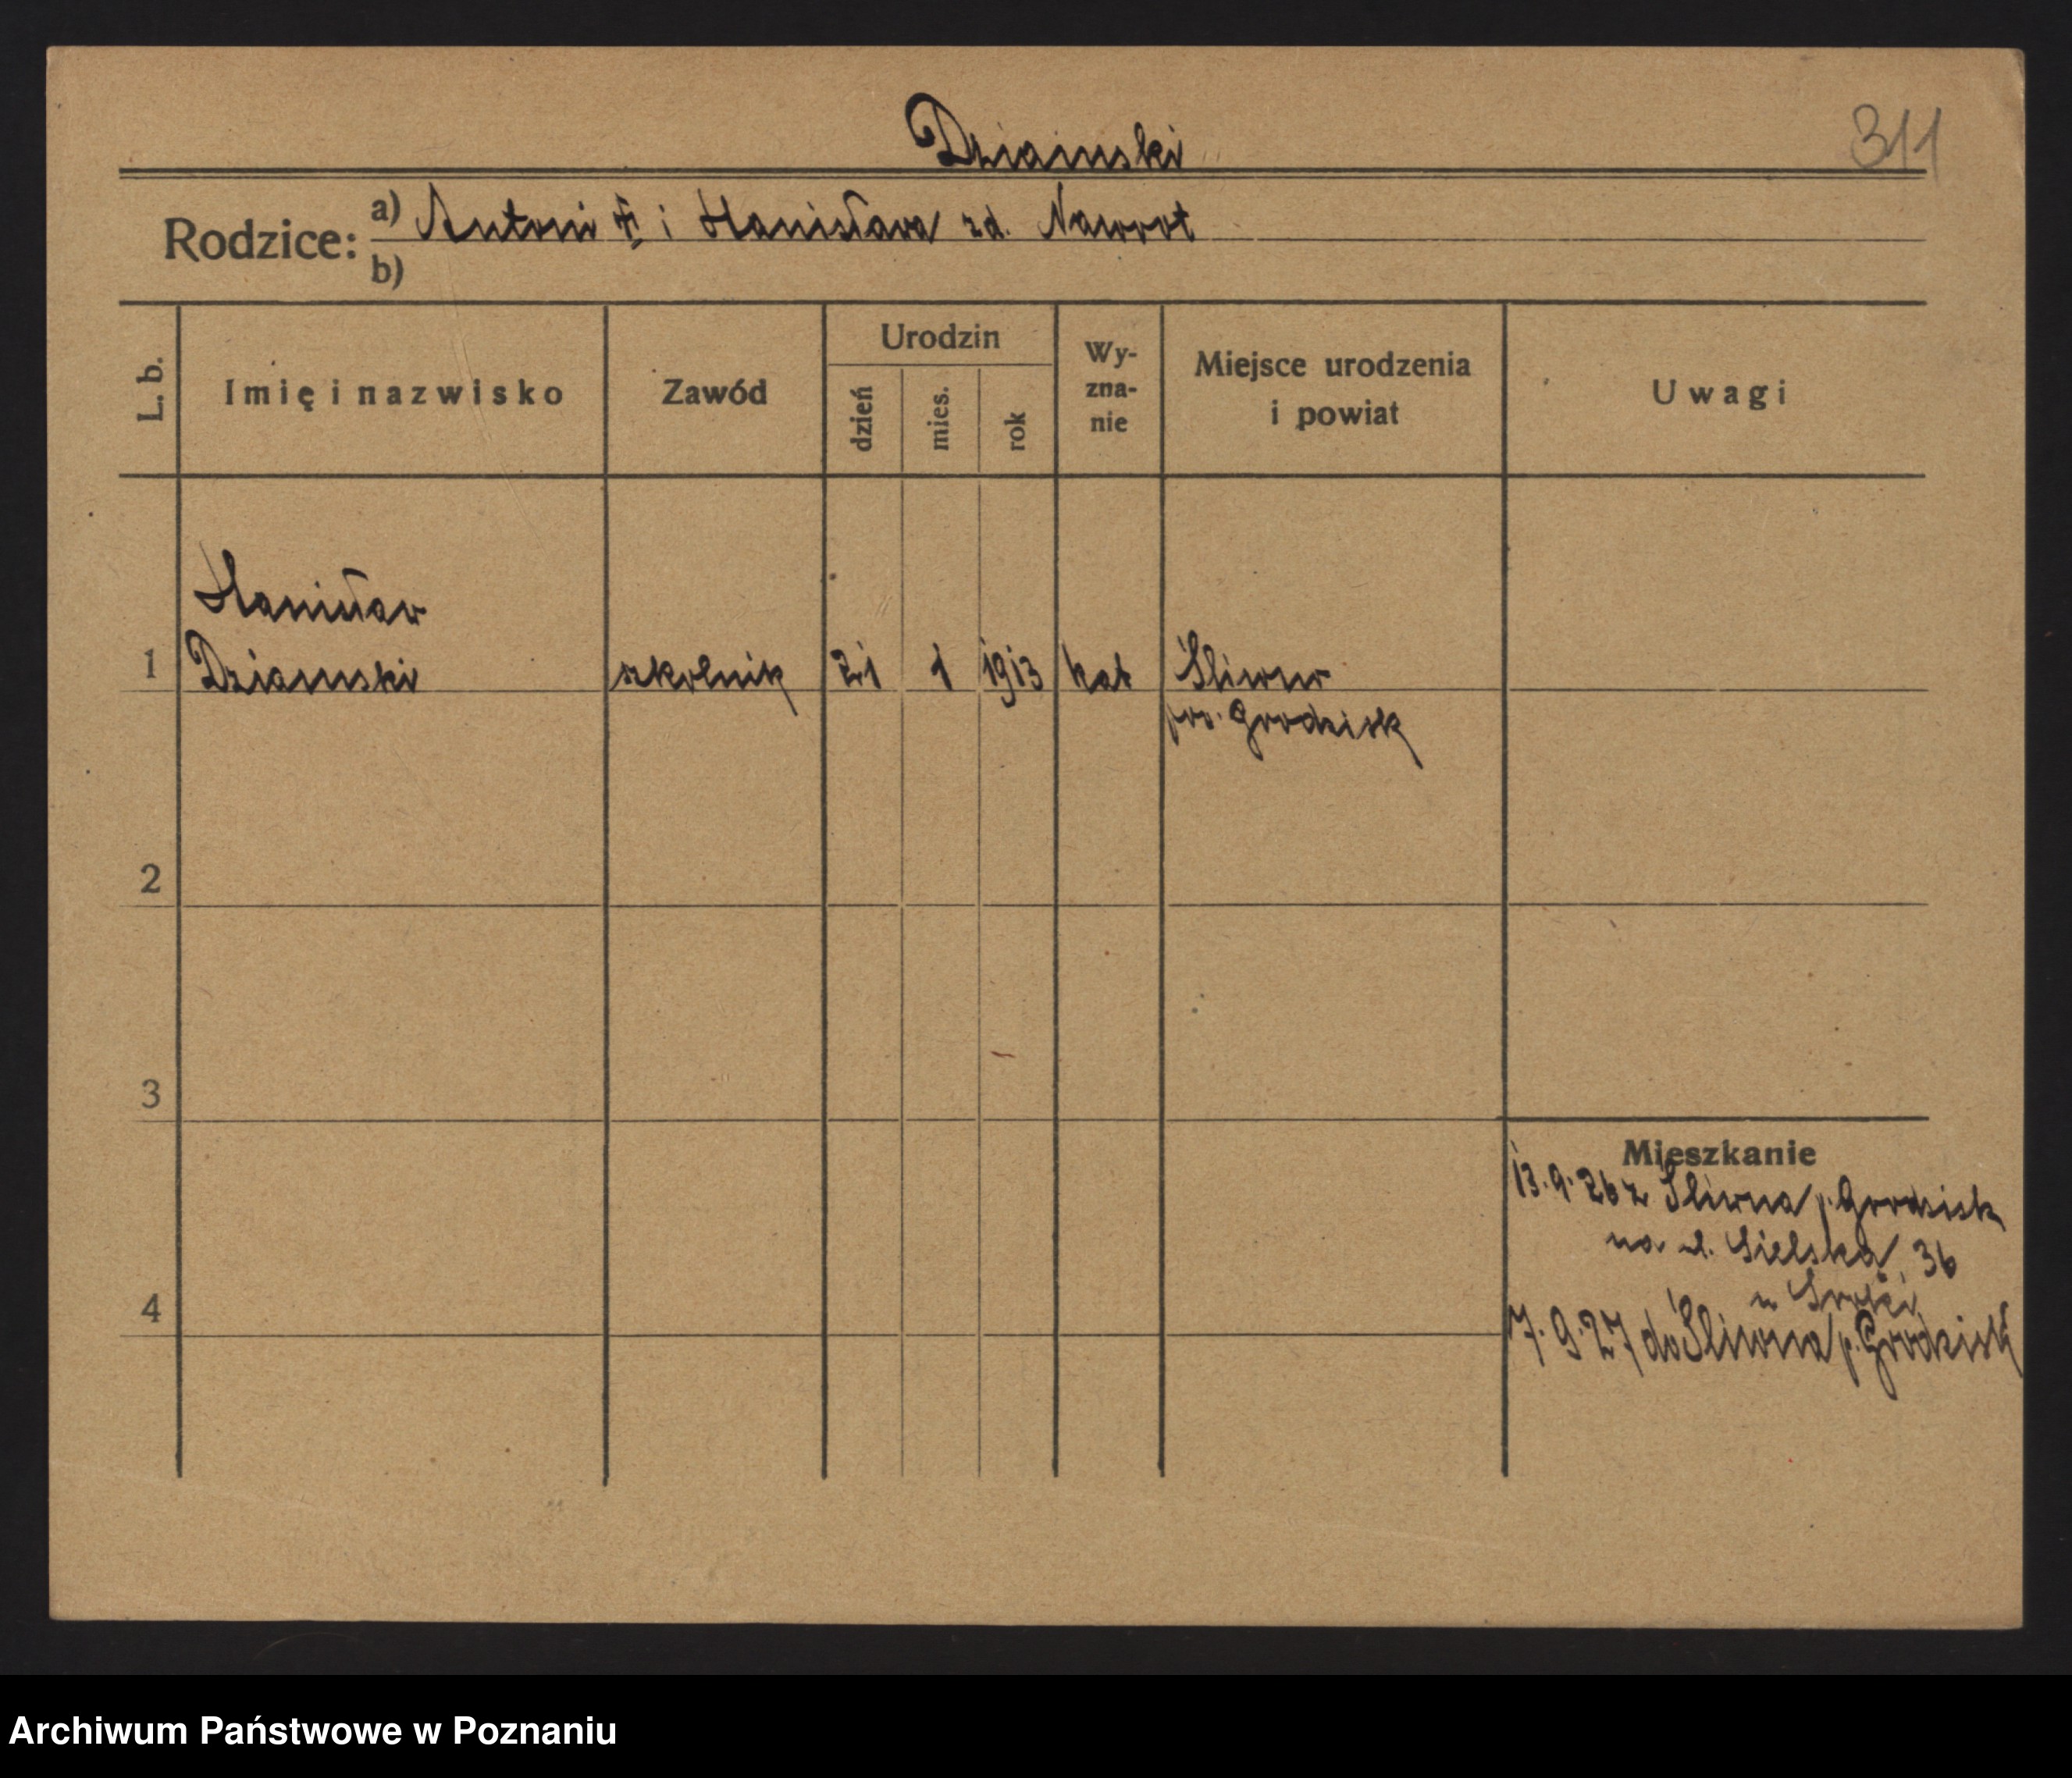 Dziamski
311
Rodzice: a) Antoni i Stanisława zd. Nawrot
b)
L. b.
Imię i nazwisko
Zawód
Urodzin
dzień
mies.
rok
Wy-
zna-
nie
Miejsce urodzenia
i powiat
Uwagi
Stanisław
1 Dziamski szkolnik 21 1 1913 kat Śliwno
pow. Grodzisk
2
3
Mieszkanie
13.9.26 z Śliwna p. Grodzisk
na ul. Sielska 36
4
7.9.27 do Śliwna p. Grodzisk
Archiwum Państwowe w Poznaniu